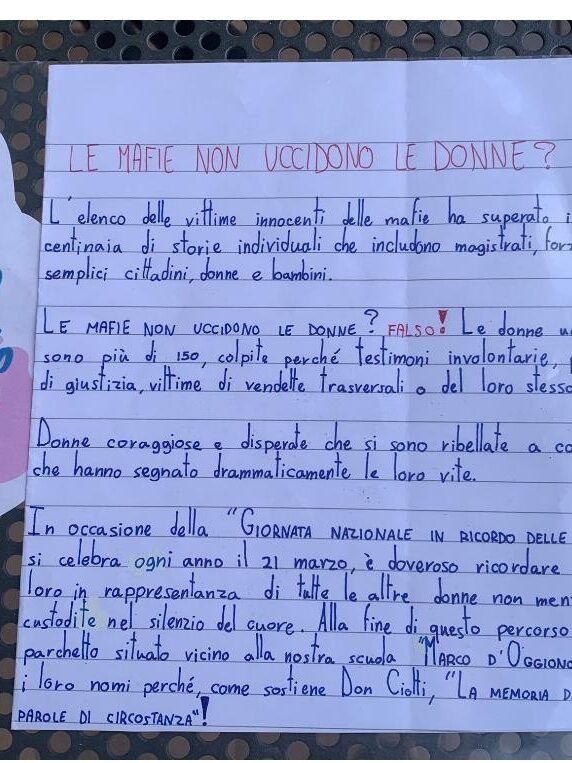 LE MAFIE NON UCCIDONO LE DONNE?
L'elenco delle vittime innocenti delle mafie ha superato i
centinaia di storie individuali che includono magistrati, for
semplici cittadini, donne e bambini.
LE MAFIE NON UCCIDONO LE DONNE? FALSO! Le donne u
sono più di 150, colpite perché testimoni involontarie,
di giustizia, vittime di vendette trasversali o del loro stesso
Donne coraggiose e disperate che si sono ribellate a co
che hanno segnato drammaticamente le loro vite.
In occasione della "GIORNATA NAZIONALE IN RICORDO DELLE
si celebra ogni anno il 21 marzo, è doveroso ricordare
loro in rappresentanza di tutte le altre donne non men
custodite nel silenzio del cuore. Alla fine di questo percorso
parchetto situato vicino alla nostra scuola "MARCO D'OGGIONO
i loro nomi perché, come sostiene Don Ciotti, "LA MEMORIA D
PAROLE DI CIRCOSTANZA"!